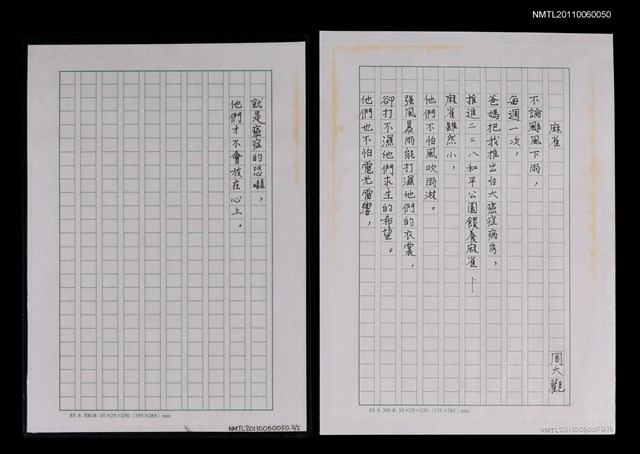 NMTL20110060050
麻雀
周大觀
不論颱風下雨，
每週一次，
爸媽把我推出台大癌症病房，
推進二二八和平公園餵養麻雀—
麻雀雖然小，
他們不怕風吹雨淋。
強風暴雨能打濕他們的衣裳，
卻打不濕他們求生的希望。
他們也不怕電光雷響，
85. 6. 300本 10×25=250 (195×265) mm
NMTL20110060050 1/2
就是癌症的恐嚇，
他們才不會放在心上。
85. 6. 300本 10×25=250 (195×265) mm
NMTL20110060050.2/2